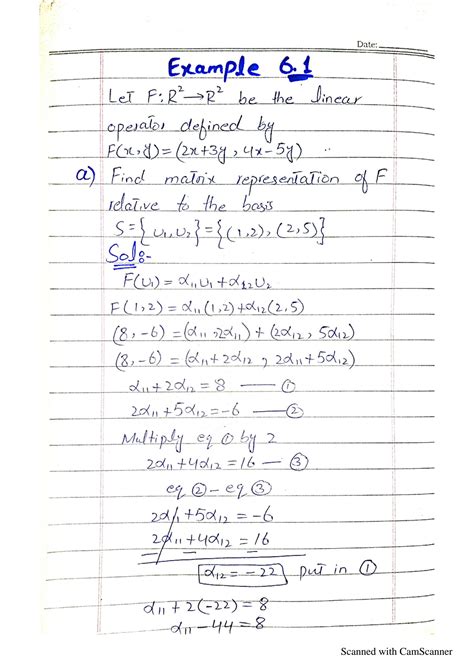 Date:
Example 6.1
Let F: R² → R² be the linear
operator defined by
F(x,y) = (2x+3y , 4x-5y) ..
a) Find matrix representation of F
relative to the basis
S = { u₁, u₂ } = {(1,2), (2,5)}
Sol:-
F(u₁) = α₁₁u₁ + α₁₂u₂
F(1,2) = α₁₁(1,2) + α₁₂(2,5)
(8,-6) = (α₁₁, 2α₁₁) + (2α₁₂, 5α₁₂)
(8,-6) = (α₁₁+2α₁₂ , 2α₁₁+5α₁₂)
α₁₁+2α₁₂ = 8 — ①
2α₁₁+5α₁₂ = -6 — ②
Multiply eq ① by 2
2α₁₁+4α₁₂ = 16 — ③
eq ② - eq ③
2α₁₁+5α₁₂ = -6
2α₁₁+4α₁₂ = 16
- - -
α₁₂ = -22 put in ①
α₁₁ + 2(-22) = 8
α₁₁ - 44 = 8
Scanned with CamScanner